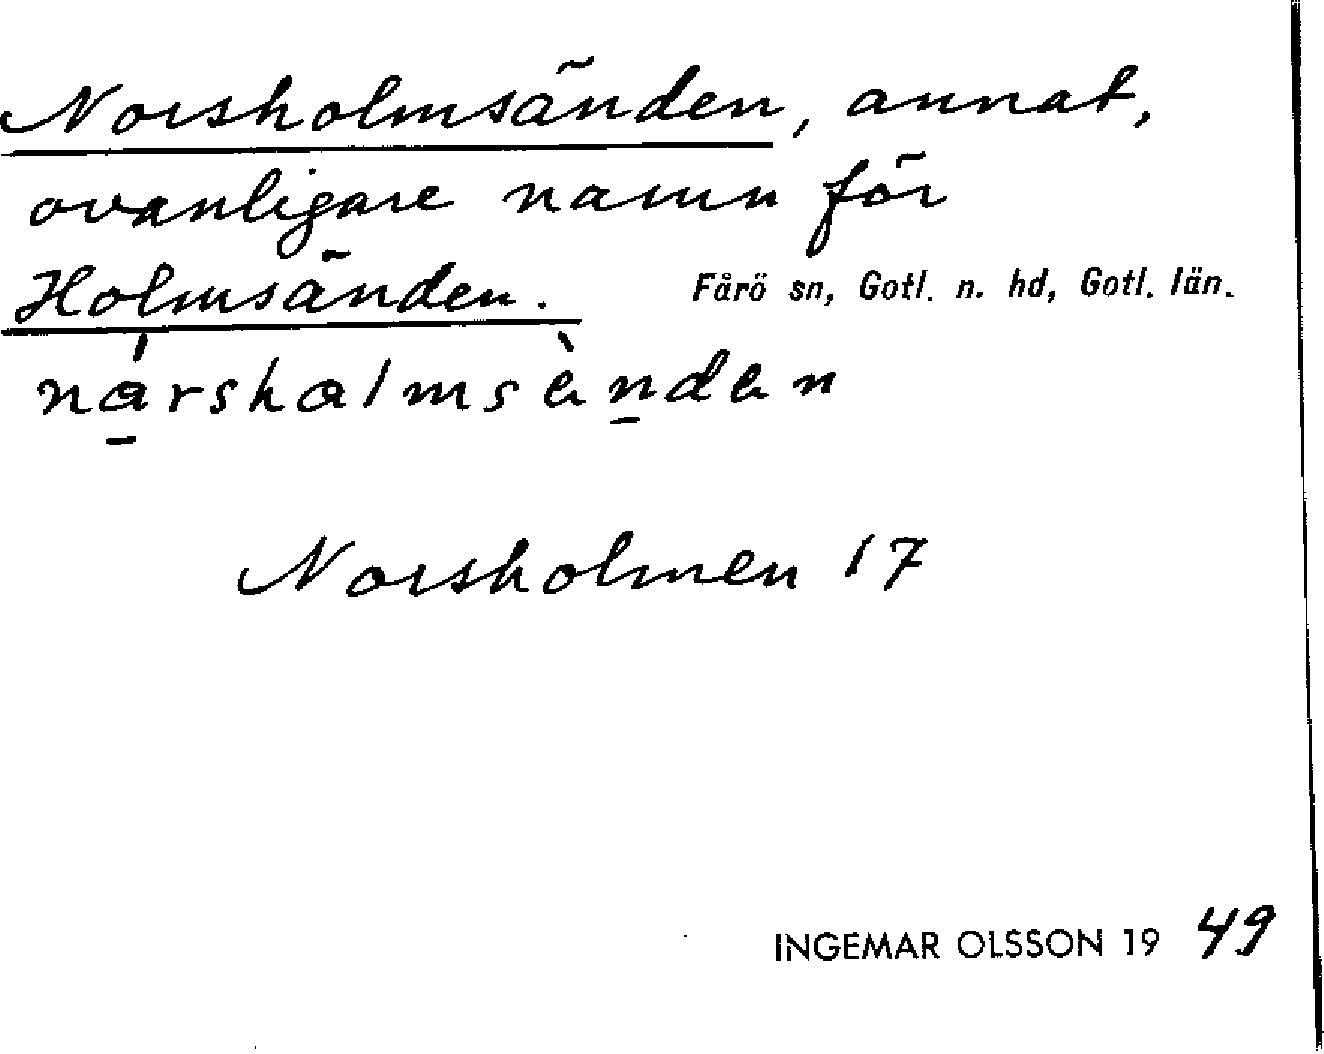 Norsholmsänden, annat,
ovanligare namn för
Holmsänden. Fårö sn, Gotl. n. hd, Gotl. län.
Norsholmen 17
INGEMAR OLSSON 19 49